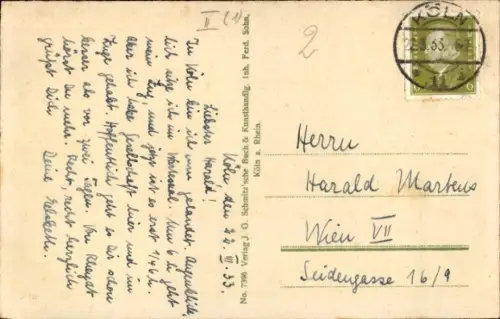 II (2)
2
KÖLN
22.3.33
6
Köln den 22. III. 33.
Liebster Harald!
In Köln bin ich nun gelandet. Augenblick-
lich sitze ich im Wartesaal. Um 6 h geht
mein Zug, und jetzt ist es erst 1/4 6 h.
Aber ich habe Gesellschaft hier und im
Zuge gehabt. Hoffentlich geht es Dir schon
besser als vor zwei Tagen. Von
hörst Du mehr. Recht, recht herzlich
grüßt Dich
Deine Elsbeth.
No. 7396 Verlag J. G. Schmitz'sche Buch & Kunsthandlg. Inh. Ferd. Sohn,
Köln a. Rhein.
Herrn
Harald Martens
Wien VII
Seidengasse 16/9